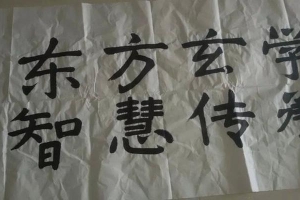 东方玄学
智慧传